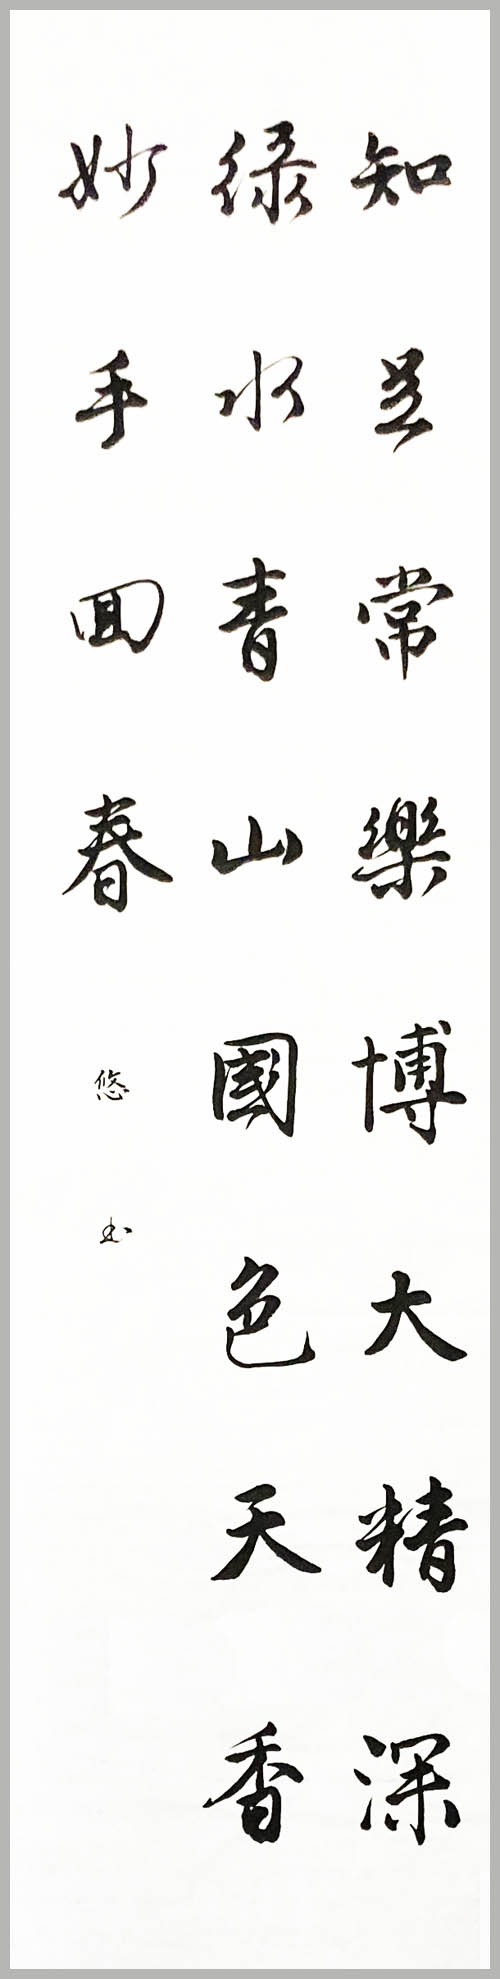 知足常樂博大精深
绿水青山國色天香
妙手回春
悠书